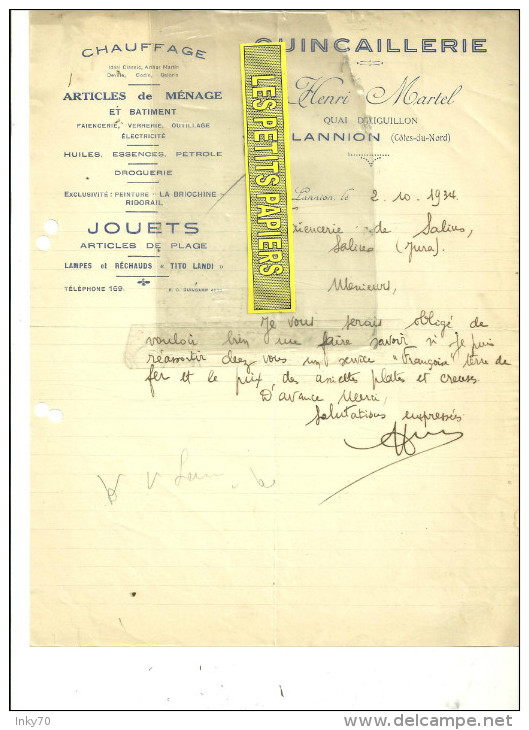 CHAUFFAGE
Arthur Martin
Deville, Godin,
ARTICLES de MÉNAGE
ET BATIMENT
FAIENCERIE, VERRERIE, OUTILLAGE
ÉLECTRICITÉ
HUILES, ESSENCES, PETROLE
DROGUERIE
EXCLUSIVITÉ : PEINTURE - LA BRIOCHINE -
RIDORAIL
JOUETS
ARTICLES DE PLAGE
LAMPES et RÉCHAUDS « TITO LANDI »
TÉLÉPHONE 169.
QUINCAILLERIE
Henri Martel
QUAI D'AIGUILLON
LANNION (Côtes-du-Nord)
LES PETITS PAPIERS
Lannion, le 2.10.1934
de Salins,
Salins (Jura).
Monsieur,
Je vous serais obligé de
vouloir bien me faire savoir si je puis
réassortir chez vous un service "Françoise" terre de
fer et le prix des assiettes plates et creuses.
D'avance Merci,
Salutations empressées
Inky70
www.delcampe.net